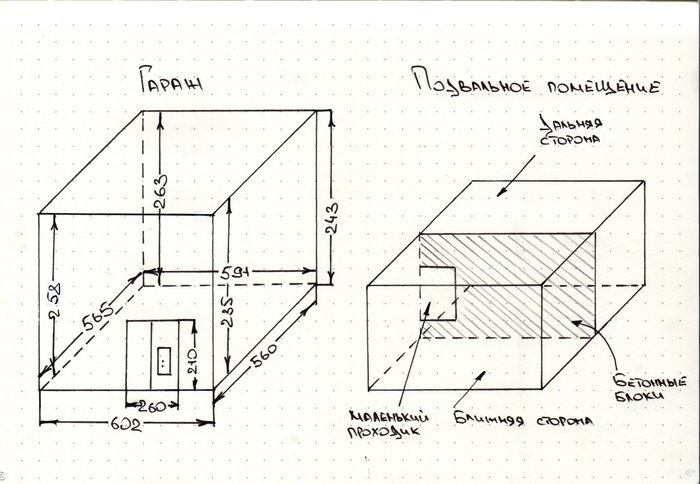 Гараж
Подвальное помещение
Дальняя
сторона
263
243
591
258
235
565
560
210
260
602
Маленький
проходик
Ближняя сторона
Бетонные
блоки